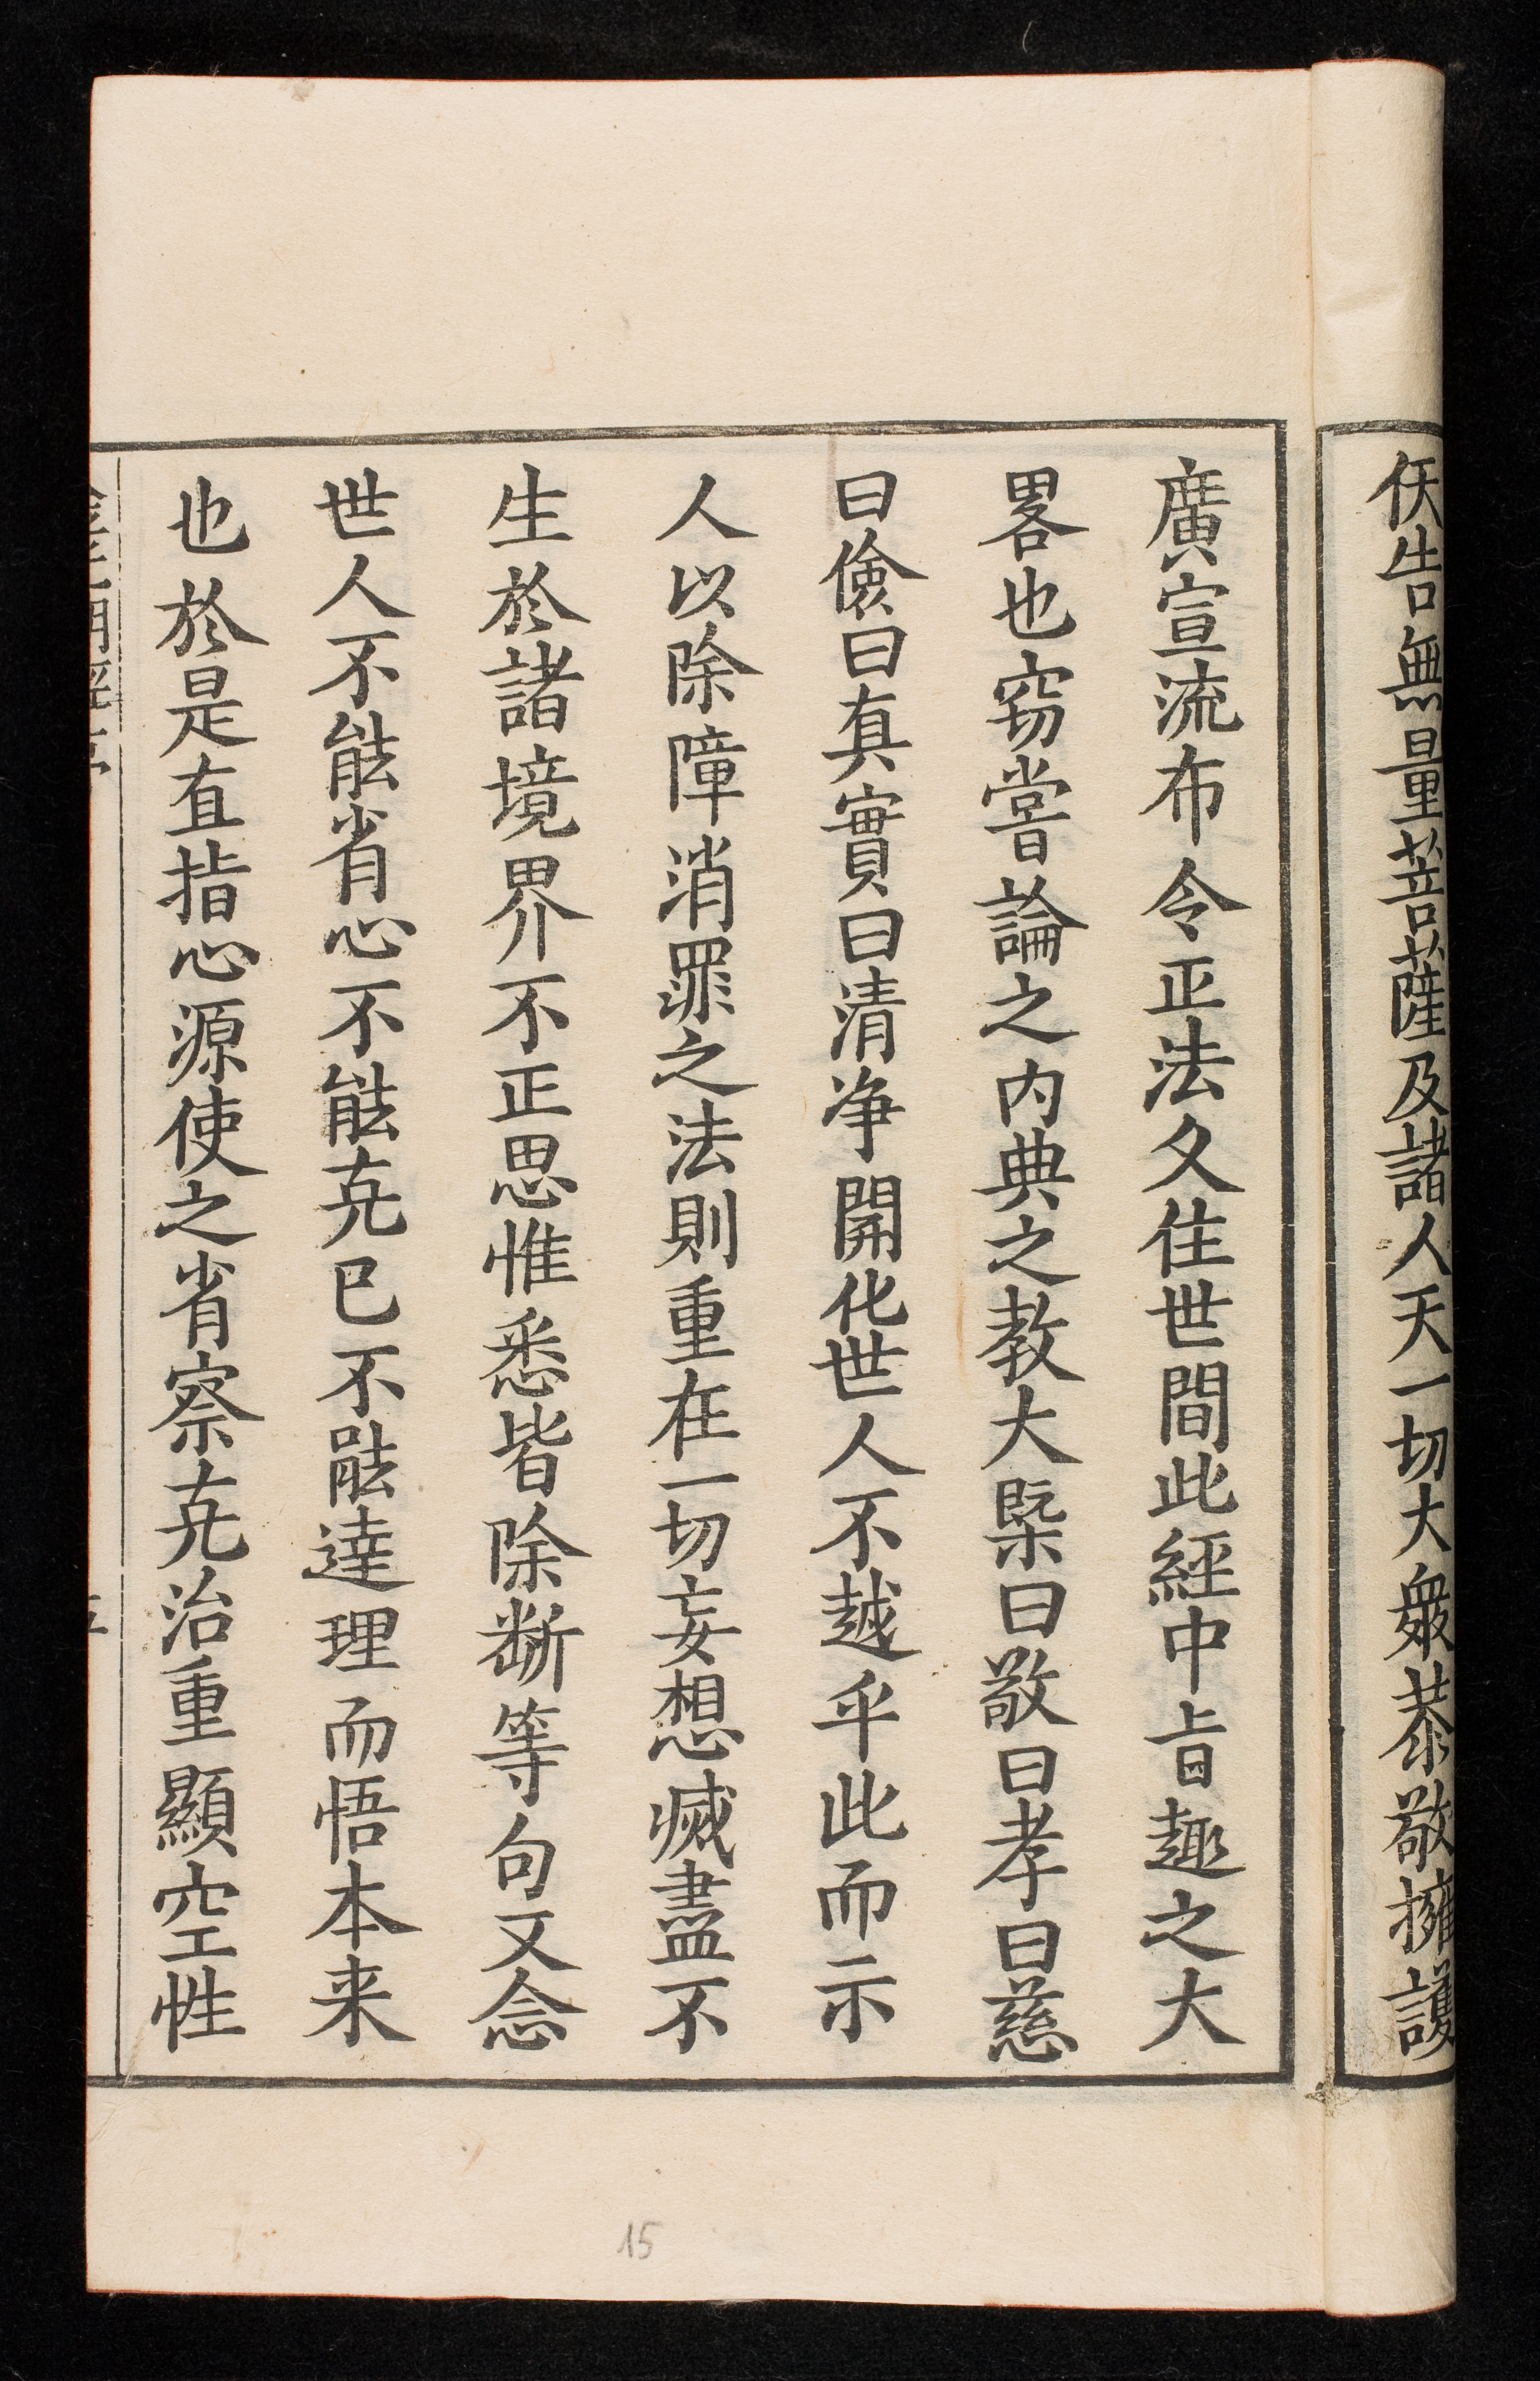 佅告無量菩薩及諸人天一切大衆恭敬擁護
廣宣流布令正法久住世間此經中㫖趣之大
畧也窃嘗論之内典之教大槩曰敬曰孝曰慈
曰儉曰真實曰清净開化世人不越乎此而示
人以除障消罪之法則重在一切妄想滅盡不
生於諸境界不正思惟悉皆除断等句又念
世人不能省心不能克已不能達理而悟本来
也於是直指心源使之省察克治重顯空性
15